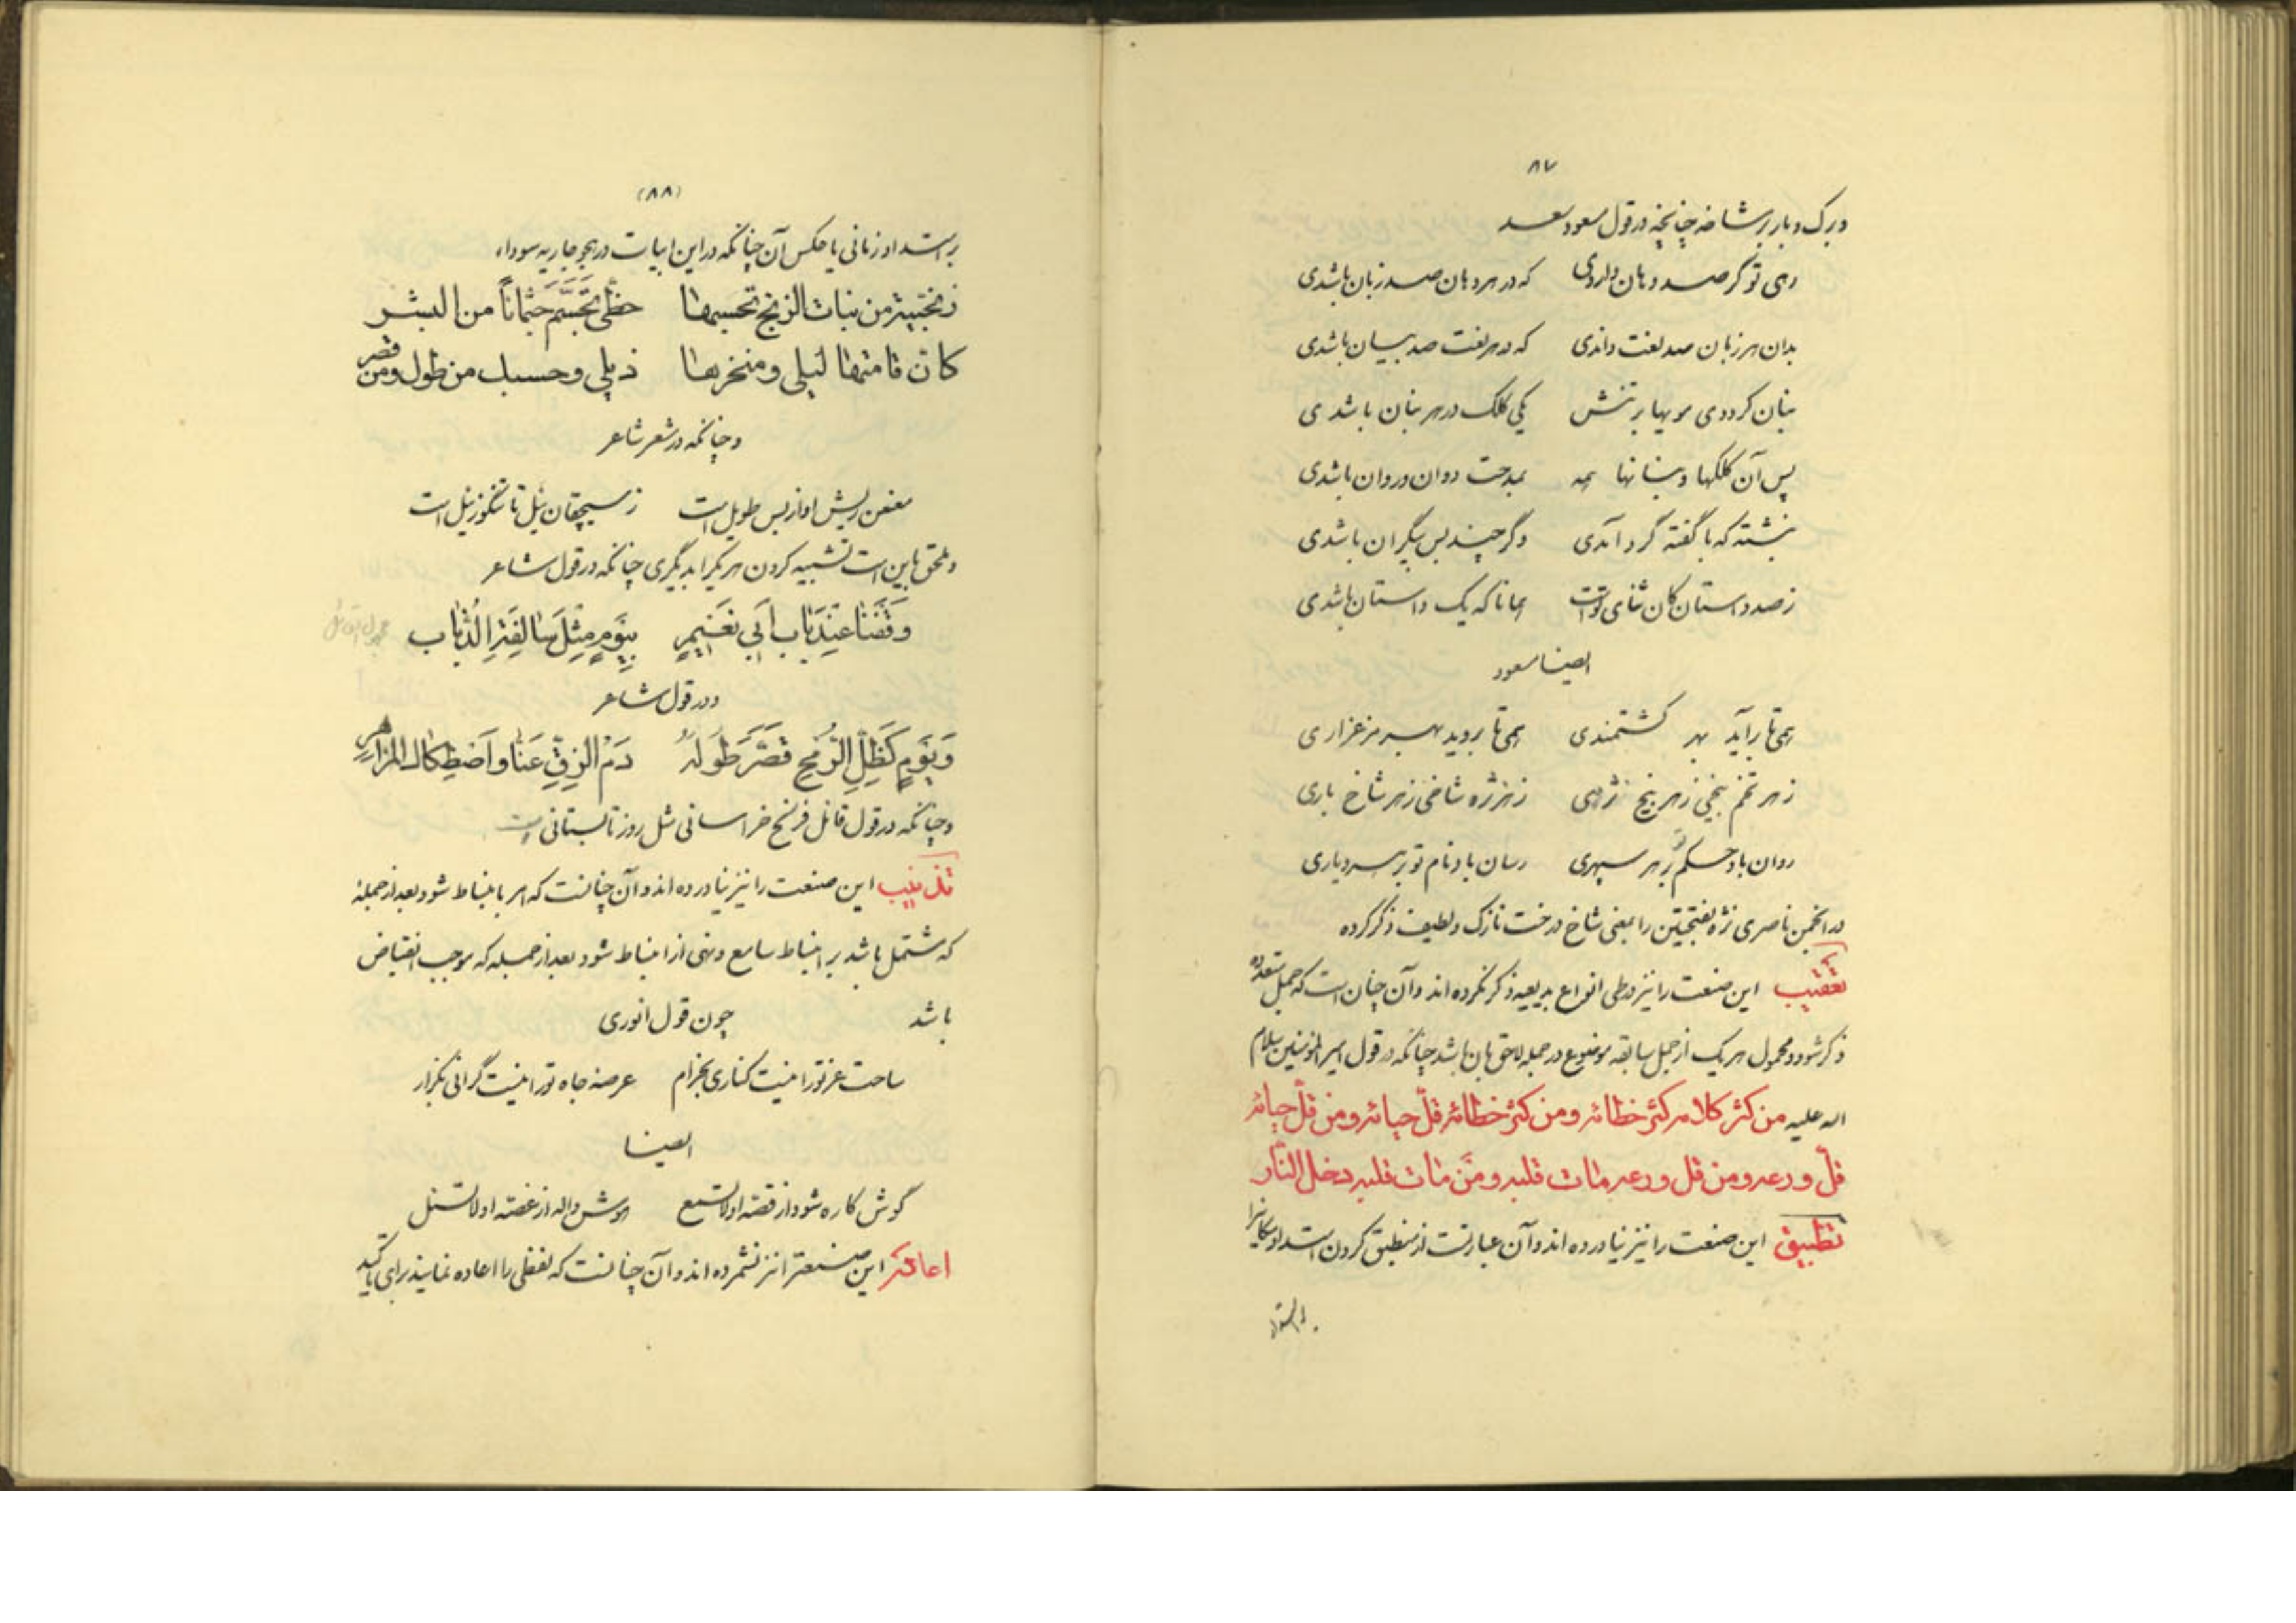 ۸۷
و برک و بار بر شاخه چنانچه در قول مسعود سعد
رهی تو گر صد دهان داردی که در هر دهان صد زبان باشدی
بدان هر زبان صد لغت داندی که در هر لغت صد بیان باشدی
بنان کرددی مویها بر تنش یکی کلک در هر بنان باشدی
پس آن کلکها و بنانها همه بمدحت دوان و روان باشدی
نبشته که با گفته گرد آمدی و گر چند بس بیکران باشدی
ز صد داستان کان ثنای تو است همانا که یک داستان باشدی
ایضا مسعود
همی تا برآید بهر کشتمندی همی تا بروید بهر مرغزاری
ز هر تخم بیخی ز هر بیخ نژهی ز هر نژه شاخی ز هر شاخ باری
روان باد حکم تو بر هر سپهری رسان باد نام تو بر هر دیاری
در انجمن ناصری نژه بفتحتین را بمعنی شاخ درخت نازک و لطیف ذکر کرده
تعقیب این صنعت را نیز در طی انواع بدیعیه ذکر نکرده اند و آن چنان است که جمل متعدده
ذکر شود و محمول هر یک از جمل سابقه موضوع در جمله لاحق بان باشد چنانکه در قول امیر المؤمنین سلام
اله علیه من کثر کلامه کثر خطائه و من کثر خطائه قلّ حیائه و من قلّ حیائه
قلّ ورعه و من قل ورعه مات قلبه و مَن مات قلبه دخل النّار
تطبیق این صنعت را نیز نیاورده اند و آن عبارتست از منطبق کردن امتداد مکانیرا
بر امتداد
(۸۸)
بر امتداد زمانی یا عکس آن چنانکه در این ابیات در هجو جاریه سوداء
زنجبیة من بنات الزنج تحسبها حظّی تجسّم جثماناً من البشر
کانّ قامتها لیلی و منخرها ذیلی و حسبک من طول و من قصر
و چنانکه در شعر شاعر
معفن ریش او از بس طویل است ز سیچقان ئیل تا تنکوز ئیل است
و ملحق باین است تشبیه کردن هر یک را بدیگری چنانکه در قول شاعر
وَقَفنا عِندَ باب اَبی نعَیمٍ بِیَومٍ مِثلَ سالِفَةِ الذُباب
و در قول شاعر
وَیَومٍ کَظِلِّ الرُمحِ قَصَّرَ طَولَهُ دَمُ الزِقِّ عَنّا وَاصْطِکاکُ المَزاهِرِ
و چنانکه در قول قائل فرسخ خراسانی مثل روز تابستانی است
تذنیب این صنعت را نیز نیاورده اند و آن چنانست که امر بانبساط شود بعد از جملهٔ
که مشتمل باشد بر انبساط سامع و نهی از انبساط شود بعد از جمله که موجب انقباض
باشد چون قول انوری
ساحت عز تو را نیست کناری بخرام عرصه جاه تو را نیست گرانی بگزار
ایضا
گوش کاره شود از قصه او لاتسمع هوش واله از غصه او لاتسئل
اعاده این صنعترا نیز نشمرده اند و آن چنانست که لفظی را اعاده نمایند برای تاکید